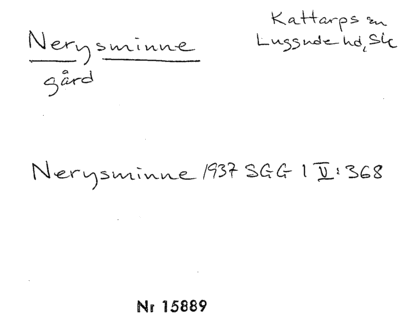 Nerysminne
gård
Kattarps sn
Luggude hd, Sk
Nerysminne 1937 SGG 1 V: 368
Nr 15889